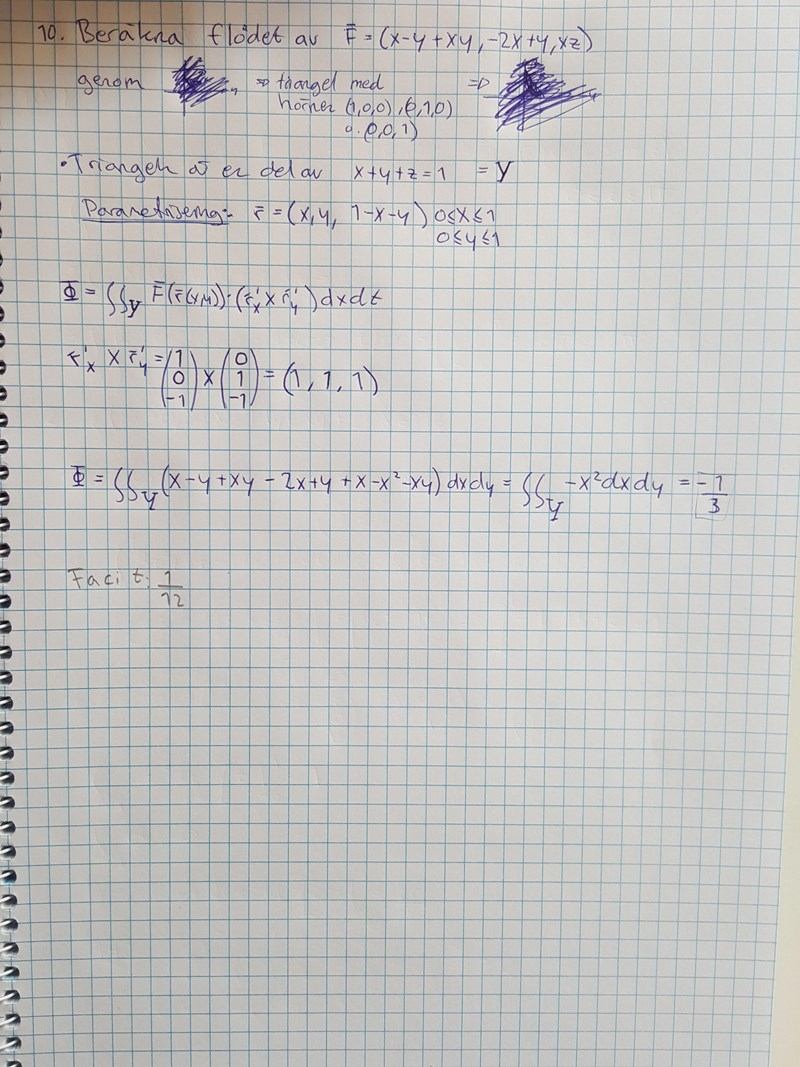 10. Beräkna flödet av F̄ = (x-y+xy, -2x+y, xz)
genom ⇒ triangel med ⇒
hörner (1,0,0), (0,1,0)
o. (0,0,1)
• Triangeln är en del av x+y+z=1 = Y
Parametrisering:- r̄ = (x, y, 1-x-y) 0≤x≤1
0≤y≤1
Φ = ∬_Y F̄(r̄(x,y))·(r̄'_x × r̄'_y) dxdt
r̄'_x × r̄'_y = (1 0 -1) × (0 1 -1) = (1, 1, 1)
Φ = ∬_Y (x-y+xy-2x+y+x-x²-xy) dxdy = ∬_Y -x² dxdy = -1/3
Facit: 1/12